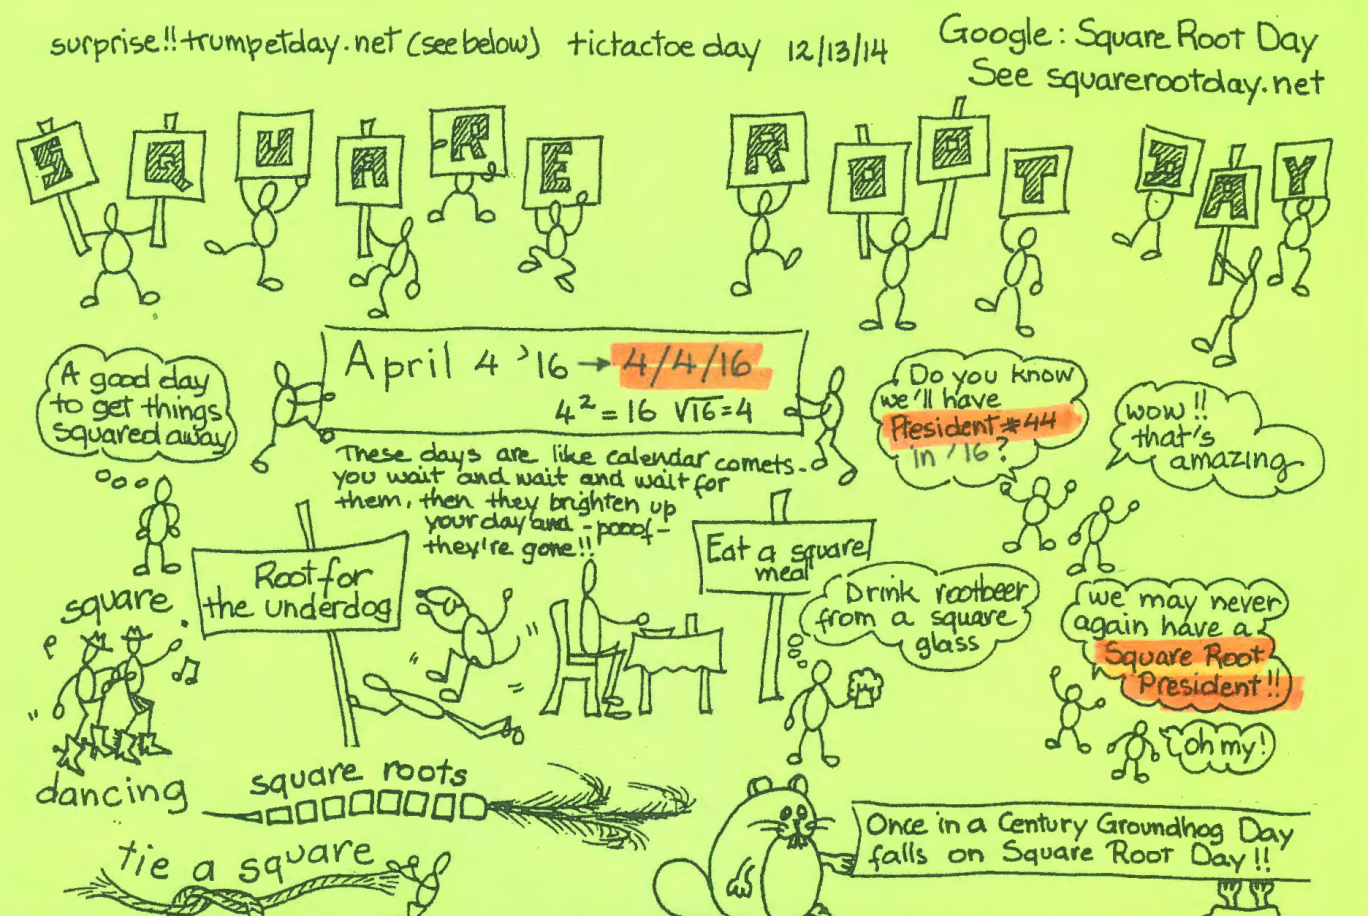 surprise!! trumpetday.net (see below) tictactoe day 12/13/14
Google: Square Root Day
See squarerootday.net
SQUARE ROOT DAY
A good day
to get things
squared away
April 4 '16 → 4/4/16
4² = 16 √16 = 4
These days are like calendar comets-
you wait and wait and wait for
them, then they brighten up
your day and -pooof-
they're gone!!
Do you know
we'll have
President #44
in '16?
wow!!
that's
amazing
square
dancing
Root for
the underdog
Eat a square
meal
Drink rootbeer
from a square
glass
we may never
again have a
Square Root
President!!
oh my!
square roots
tie a square
Once in a Century Groundhog Day
falls on Square Root Day!!